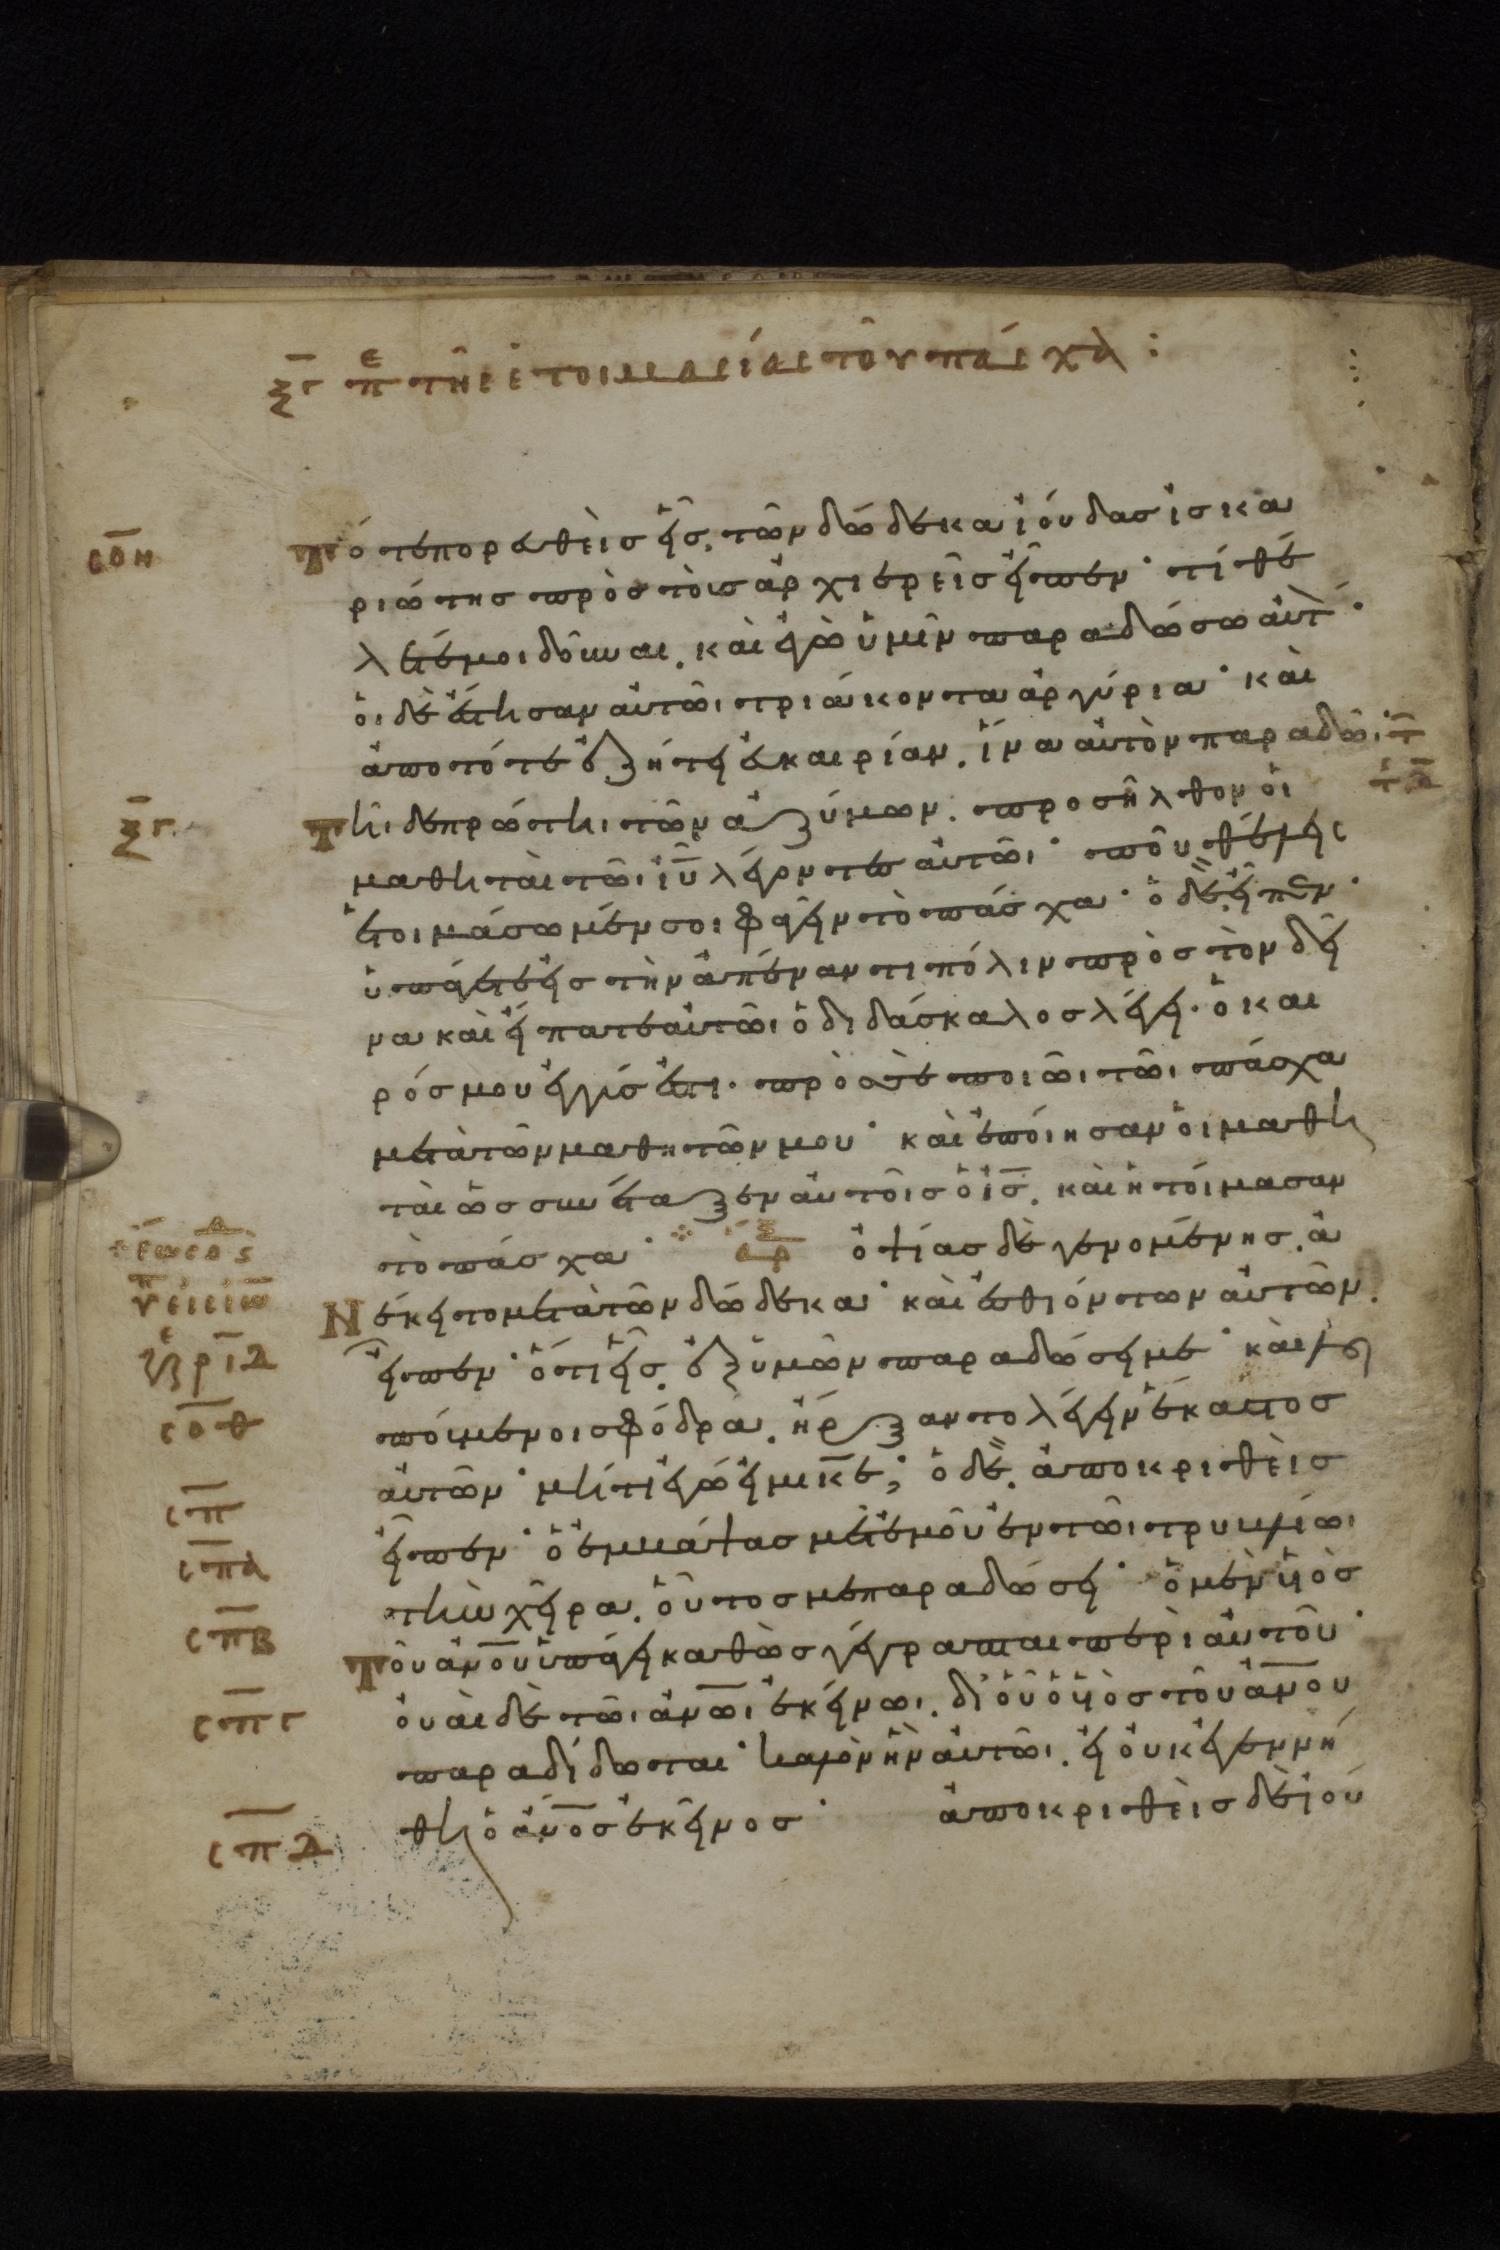 ξγ πε τῆς ἑτοιμασίας τοῦ πάσχα :
σοη Τότε πορευθεὶς εἷς. τῶν δώδεκα ἰούδας ἰσκα
ριώτης πρὸς τοὺς ἀρχιερεῖς εἶπεν· τί θέ
λετέ μοι δοῦναι. καὶ ἐγὼ ὑμῖν παραδώσω αὐτ·
ὁι δὲ ἔστησαν αὐτῶι τριάκοντα ἀργύρια· καὶ
ἀπὸ τότε ἐζήτει εὐκαιρίαν. ἵνα αὐτὸν παραδῶι·
ξγ Τῆι δὲ πρώτηι τῶν ἀζύμων. προσῆλθον ὁι
μαθηταὶ τῶι ἰῡ λέγοντες αὐτῶι· ποῦ θέλεις
ἑτοιμάσωμέν σοι φαγεῖν τὸ πάσχα· ὁ δὲ εἶπεν·
ὑπάγετε εἰς τὴν ἀπέναντι πόλιν πρὸς τὸν δεῖ
να καὶ εἴπατε αὐτῶι ὁ διδάσκαλος λέγει· ὁ και
ρός μου ἐγγύς ἐστι· πρὸς σὲ ποιῶ τὸ πάσχα
μετὰ τῶν μαθητῶν μου· καὶ ἐποίησαν ὁι μαθη
ταὶ ὡς συνέταξεν αὐτοῖς ὁ ἰς̄. καὶ ἡτοίμασαν
τὸ πάσχα· ὀψίας δὲ γενομένης. ἀ
Νέκειτο μετὰ τῶν δώδεκα· καὶ ἐσθιόντων αὐτῶν.
εἶπεν· ὅτι εἷς. ἐξ ὑμῶν παραδώσει με· καὶ λυ
σοθ πούμενοι σφόδρα. ἤρξαντο λέγειν ἕκαστος
αὐτῶν· μήτι ἐγώ εἰμι κ̄ε; ὁ δὲ. ἀποκριθεὶς
σπ εἶπεν· ὁ ἐμβάψας μετ ἐμοῦ ἐν τῶι τρυβλίωι
σπα τὴν χεῖρα. οὗτος με παραδώσει· ὁ μὲν υἱὸς
σπβ Τοῦ ἀν̄ου ὑπάγει καθὼς γέγραπται περὶ αὐτοῦ·
σπγ ὀυαὶ δὲ τῶι ἀν̄ωι ἐκείνωι. δι οὗ ὁ υἱὸς τοῦ ἀν̄ου
παραδίδοται· καλὸν ἦν αὐτῶι. εἰ ὀυκ ἐγεννή
σπδ θη ὁ ἀν̄ος ἐκεῖνος· ἀποκριθεὶς δὲ ἰού